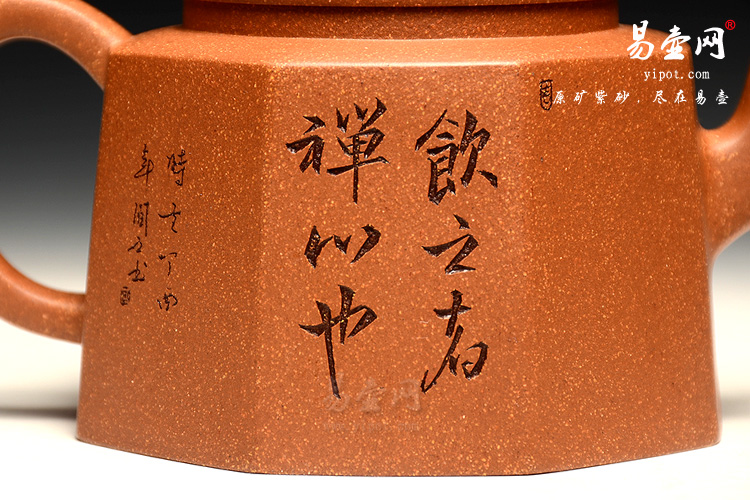 易壶网®
yipot.com
原矿紫砂，尽在易壶
飲之者
禅心也
時
年閒石书
易壶网